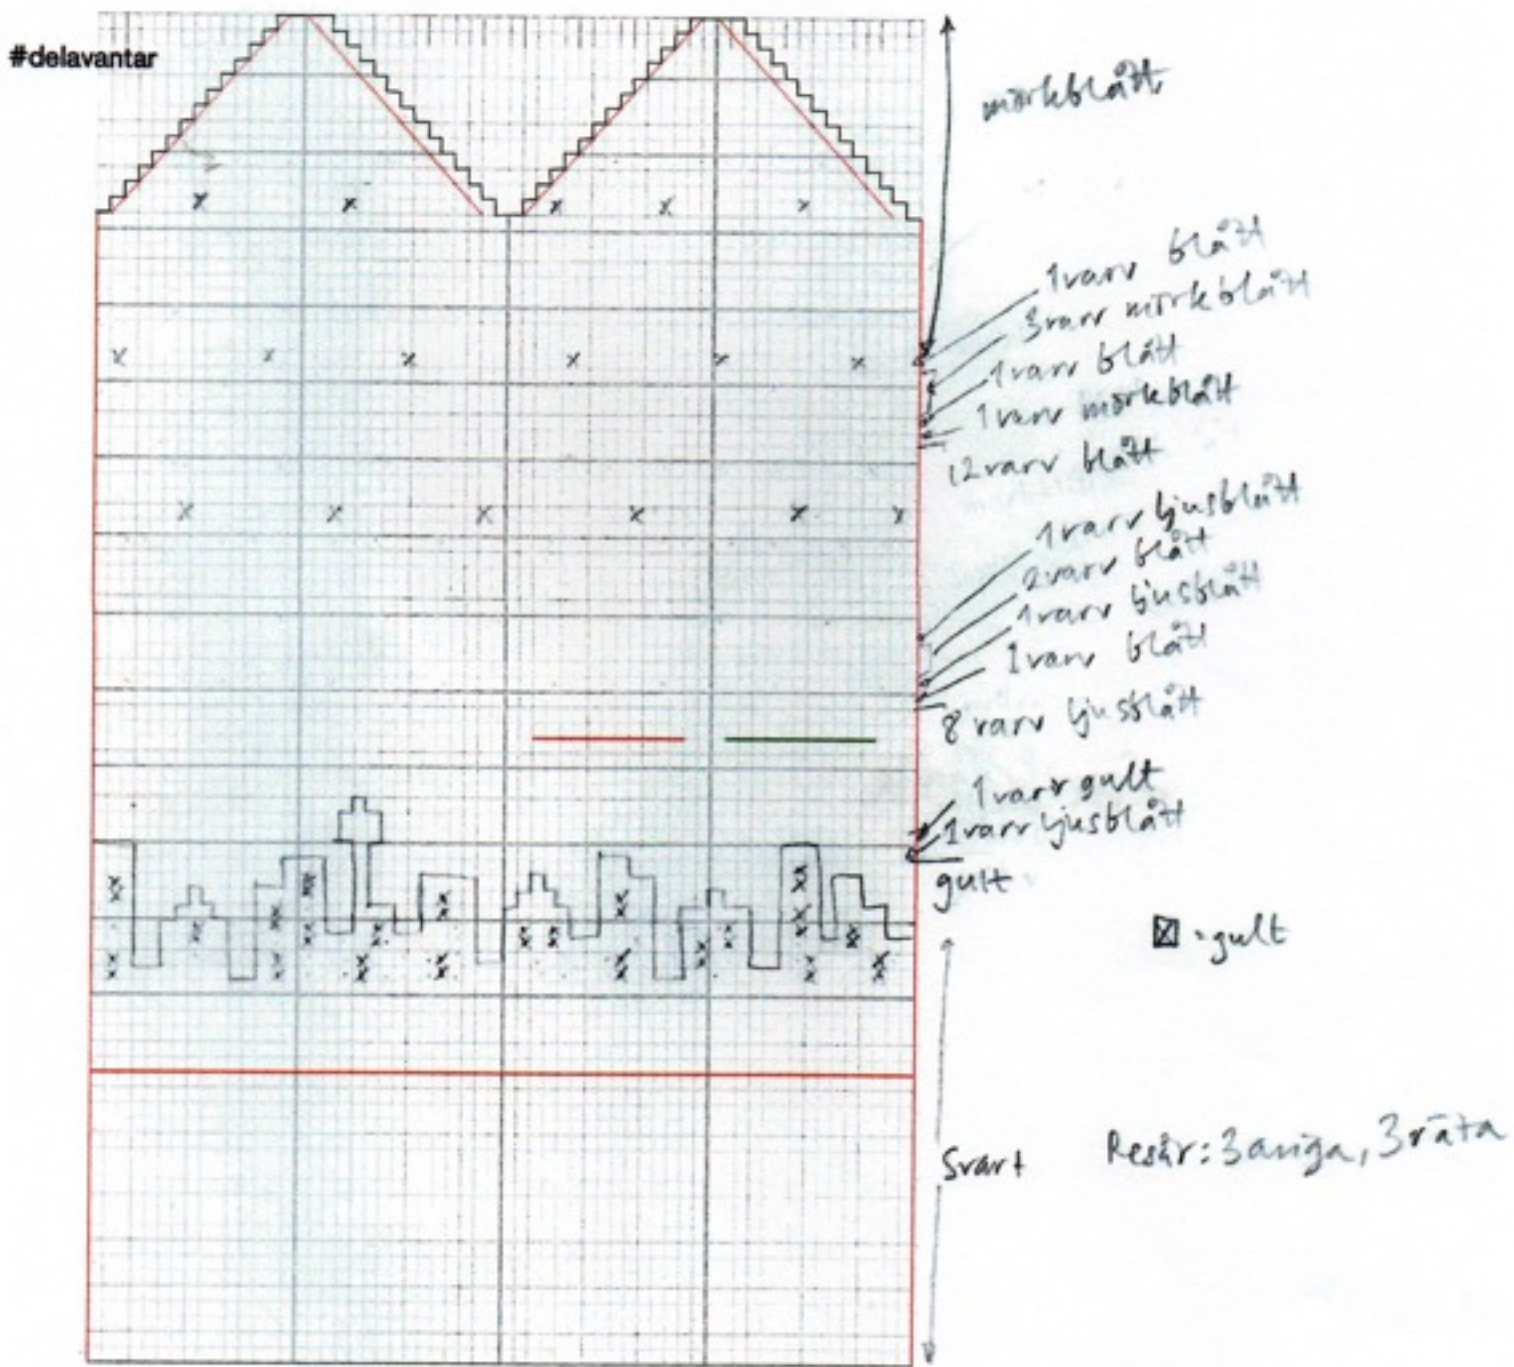 #delavantar
mörkblått
1 varv blått
3 varv mörkblått
1 varv blått
1 varv mörkblått
12 varv blått
1 varv ljusblått
2 varv blått
1 varv ljusblått
1 varv blått
8 varv ljusblått
1 varv gult
1 varv ljusblått
gult
☒ = gult
Svart
Resår: 3 aviga, 3 räta